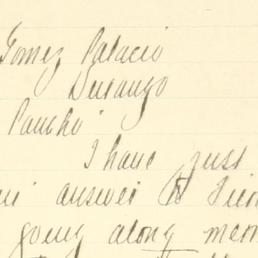 Gomez Palacio
Durango
Pancho
I have just
answer to
going along